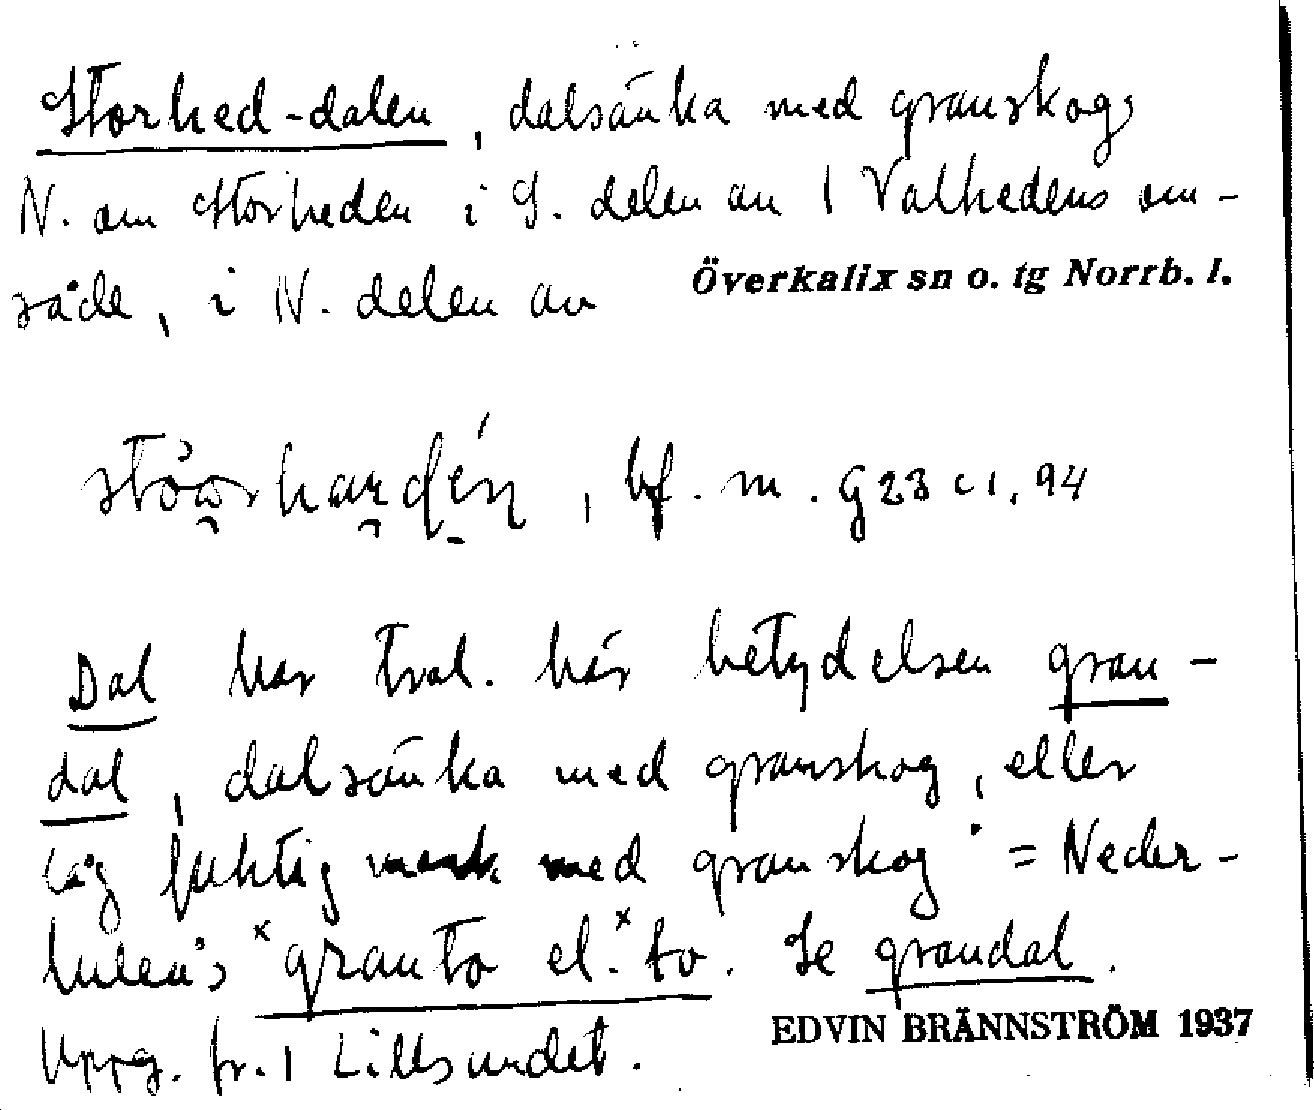 Storhed-dalen, dalsänka med granskog,
N. om Storheden i S. delen av 1 Valhedens om-
råde, i N. delen av Överkalix sn o. tg Norrb. l.
bf. m. G23 c1, 94
Dal har trol. här betydelsen gran-
dal, dalsänka med granskog, eller
låg fuktig mark med granskog = Neder-
lulea's ˣgranto el. ˣto. Se grandal.
Uppg. fr. 1 Lillsundet. EDVIN BRÄNNSTRÖM 1937